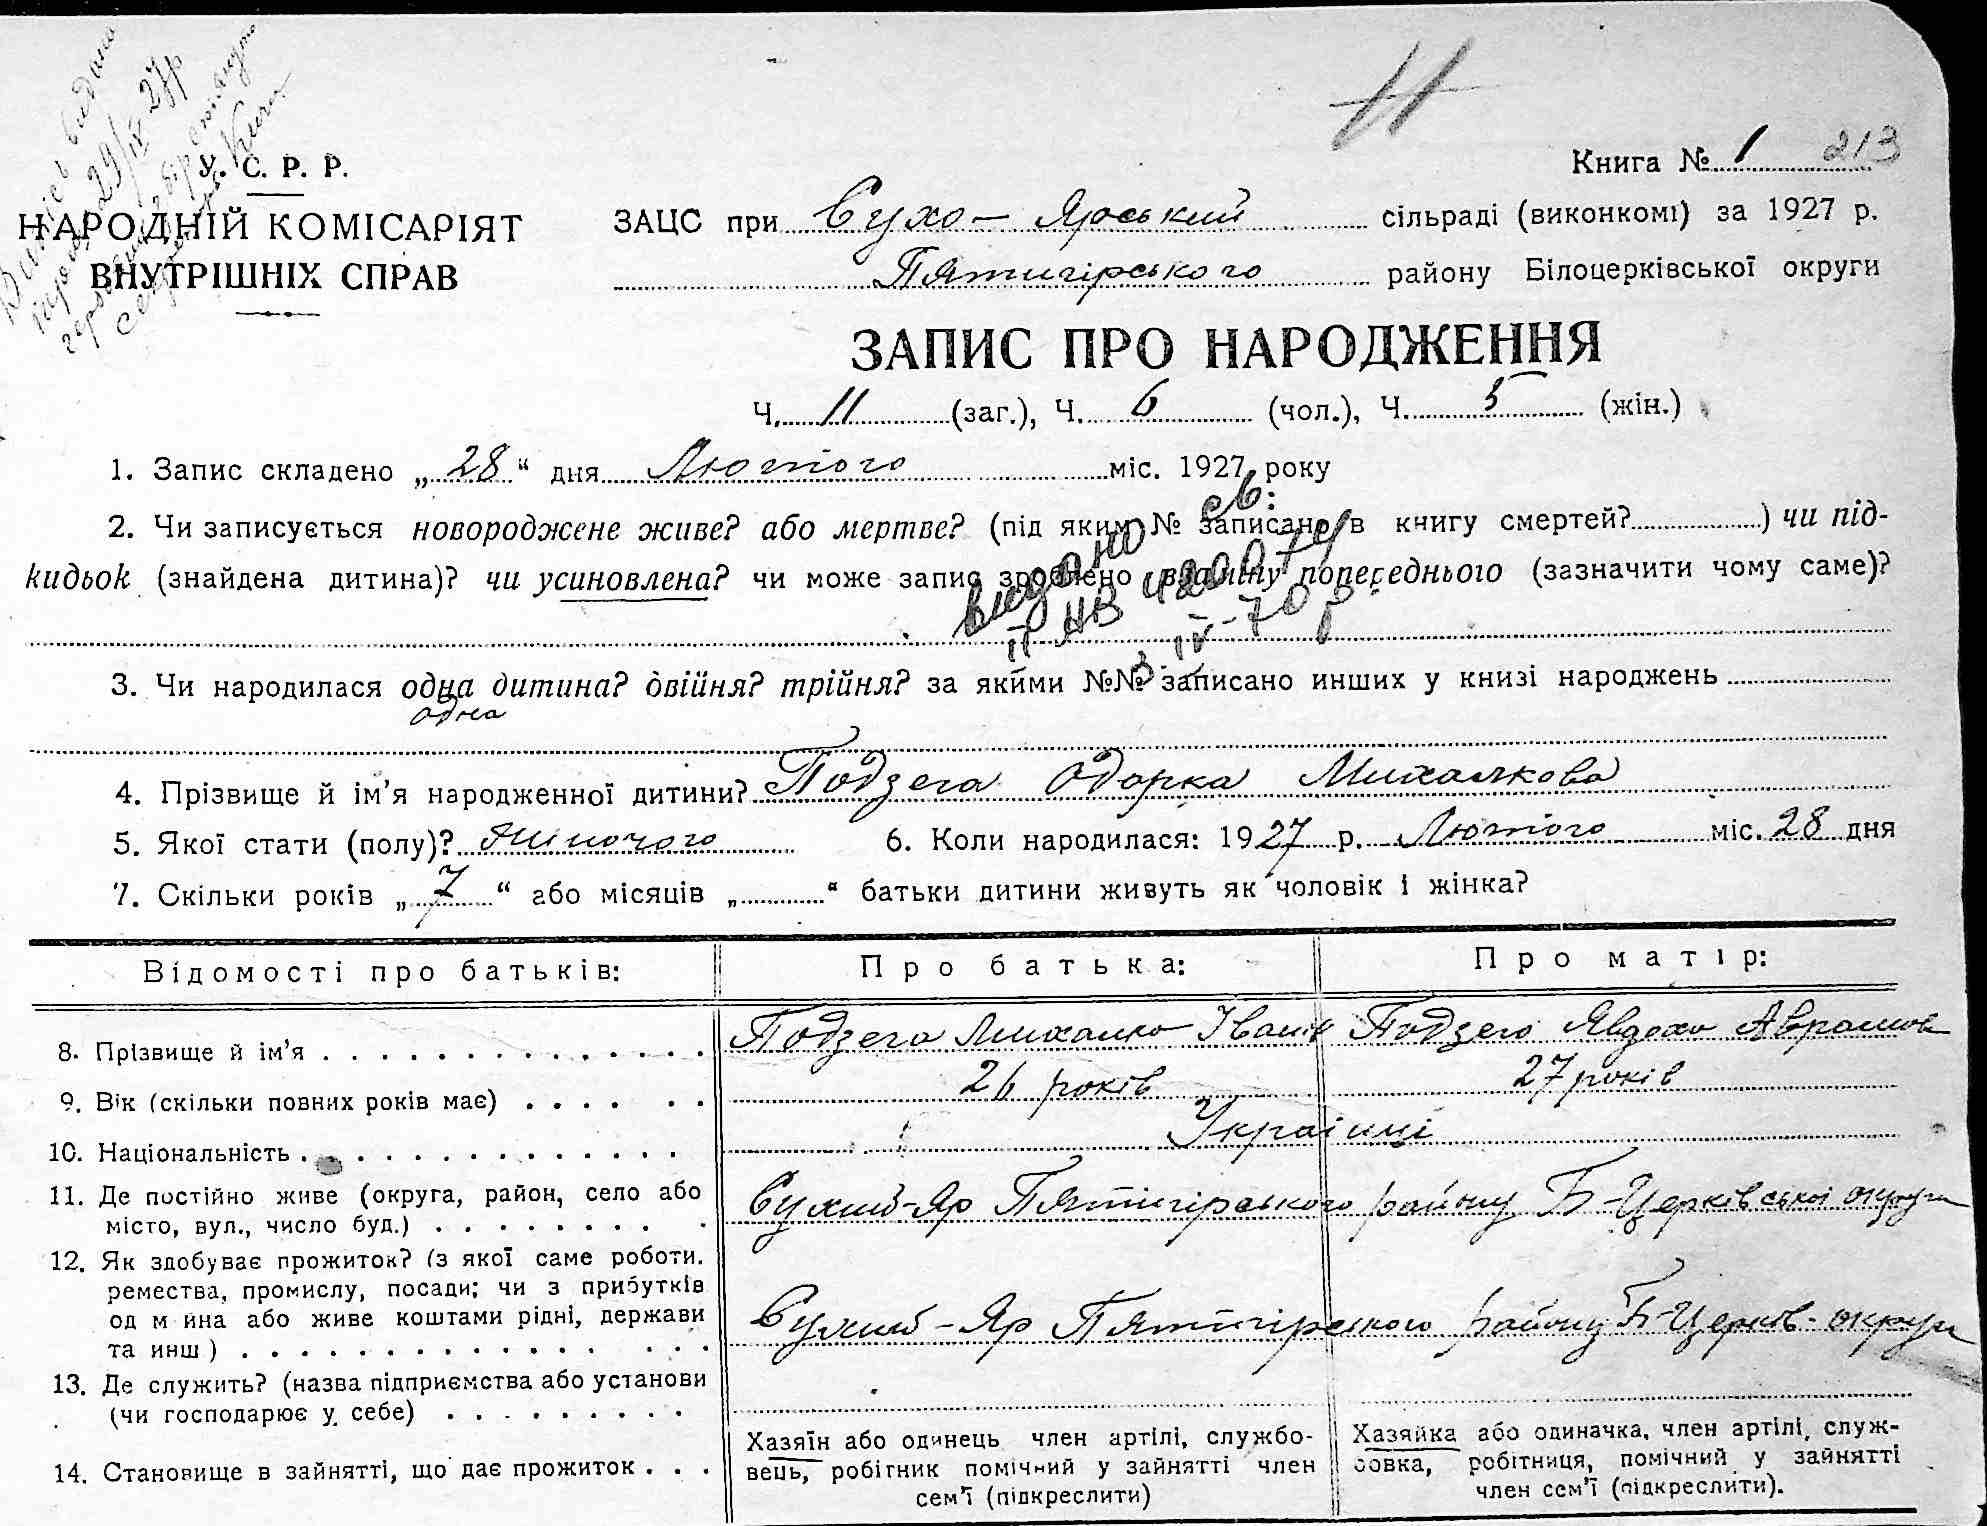 У. С. Р. Р.
НАРОДНІЙ КОМІСАРІЯТ
ВНУТРІШНІХ СПРАВ
видано
29/IV 27р
11
Книга № 1 213
ЗАЦС при Сухо-Ярський сільраді (виконкомі) за 1927 р.
Пятигірського району Білоцерківської округи
ЗАПИС ПРО НАРОДЖЕННЯ
Ч. 11 (заг.), Ч. 6 (чол.), Ч. 5 (жін.)
1. Запис складено „28“ дня Лютого міс. 1927 року
2. Чи записується новороджене живе? або мертве? (під яким № записано в книгу смертей? ) чи під-
кидьок (знайдена дитина)? чи усиновлена? чи може запис зроблено взаміну попереднього (зазначити чому саме)?
видано св:
ІІ НВ 420074
3 IV-70 р.
3. Чи народилася одна дитина? двійня? трійня? за якими №№ записано инших у книзі народжень
одна
4. Прізвище й ім’я народженної дитини? Подзега Одарка Михалкова
5. Якої стати (полу)? жіночого 6. Коли народилася: 1927 р. Лютого міс. 28 дня
7. Скільки років „7“ або місяців „ “ батьки дитини живуть як чоловік і жінка?
Відомості про батьків: Про батька: Про матір:
8. Прізвище й ім’я Подзега Михалко Іванів Подзега Явдоха Аврамов
9. Вік (скільки повних років має) 26 років 27 років
10. Національність Українці
11. Де постійно живе (округа, район, село або
місто, вул., число буд.) Сухий-Яр Пятигірського району Б-Церківської округи
12. Як здобуває прожиток? (з якої саме роботи.
ремества, промислу, посади; чи з прибутків
од м йна або живе коштами рідні, держави
та инш) Сухий-Яр Пятигірського району Б-Церків. округи
13. Де служить? (назва підприємства або установи
(чи господарює у себе)
14. Становище в зайнятті, що дає прожиток
Хазяїн або одинець член артілі, службо-
вець, робітник помічний у зайнятті член
сем’ї (підкреслити)
Хазяйка або одиначка, член артілі, служ-
бовка, робітниця, помічний у зайнятті
член сем’ї (підкреслити).